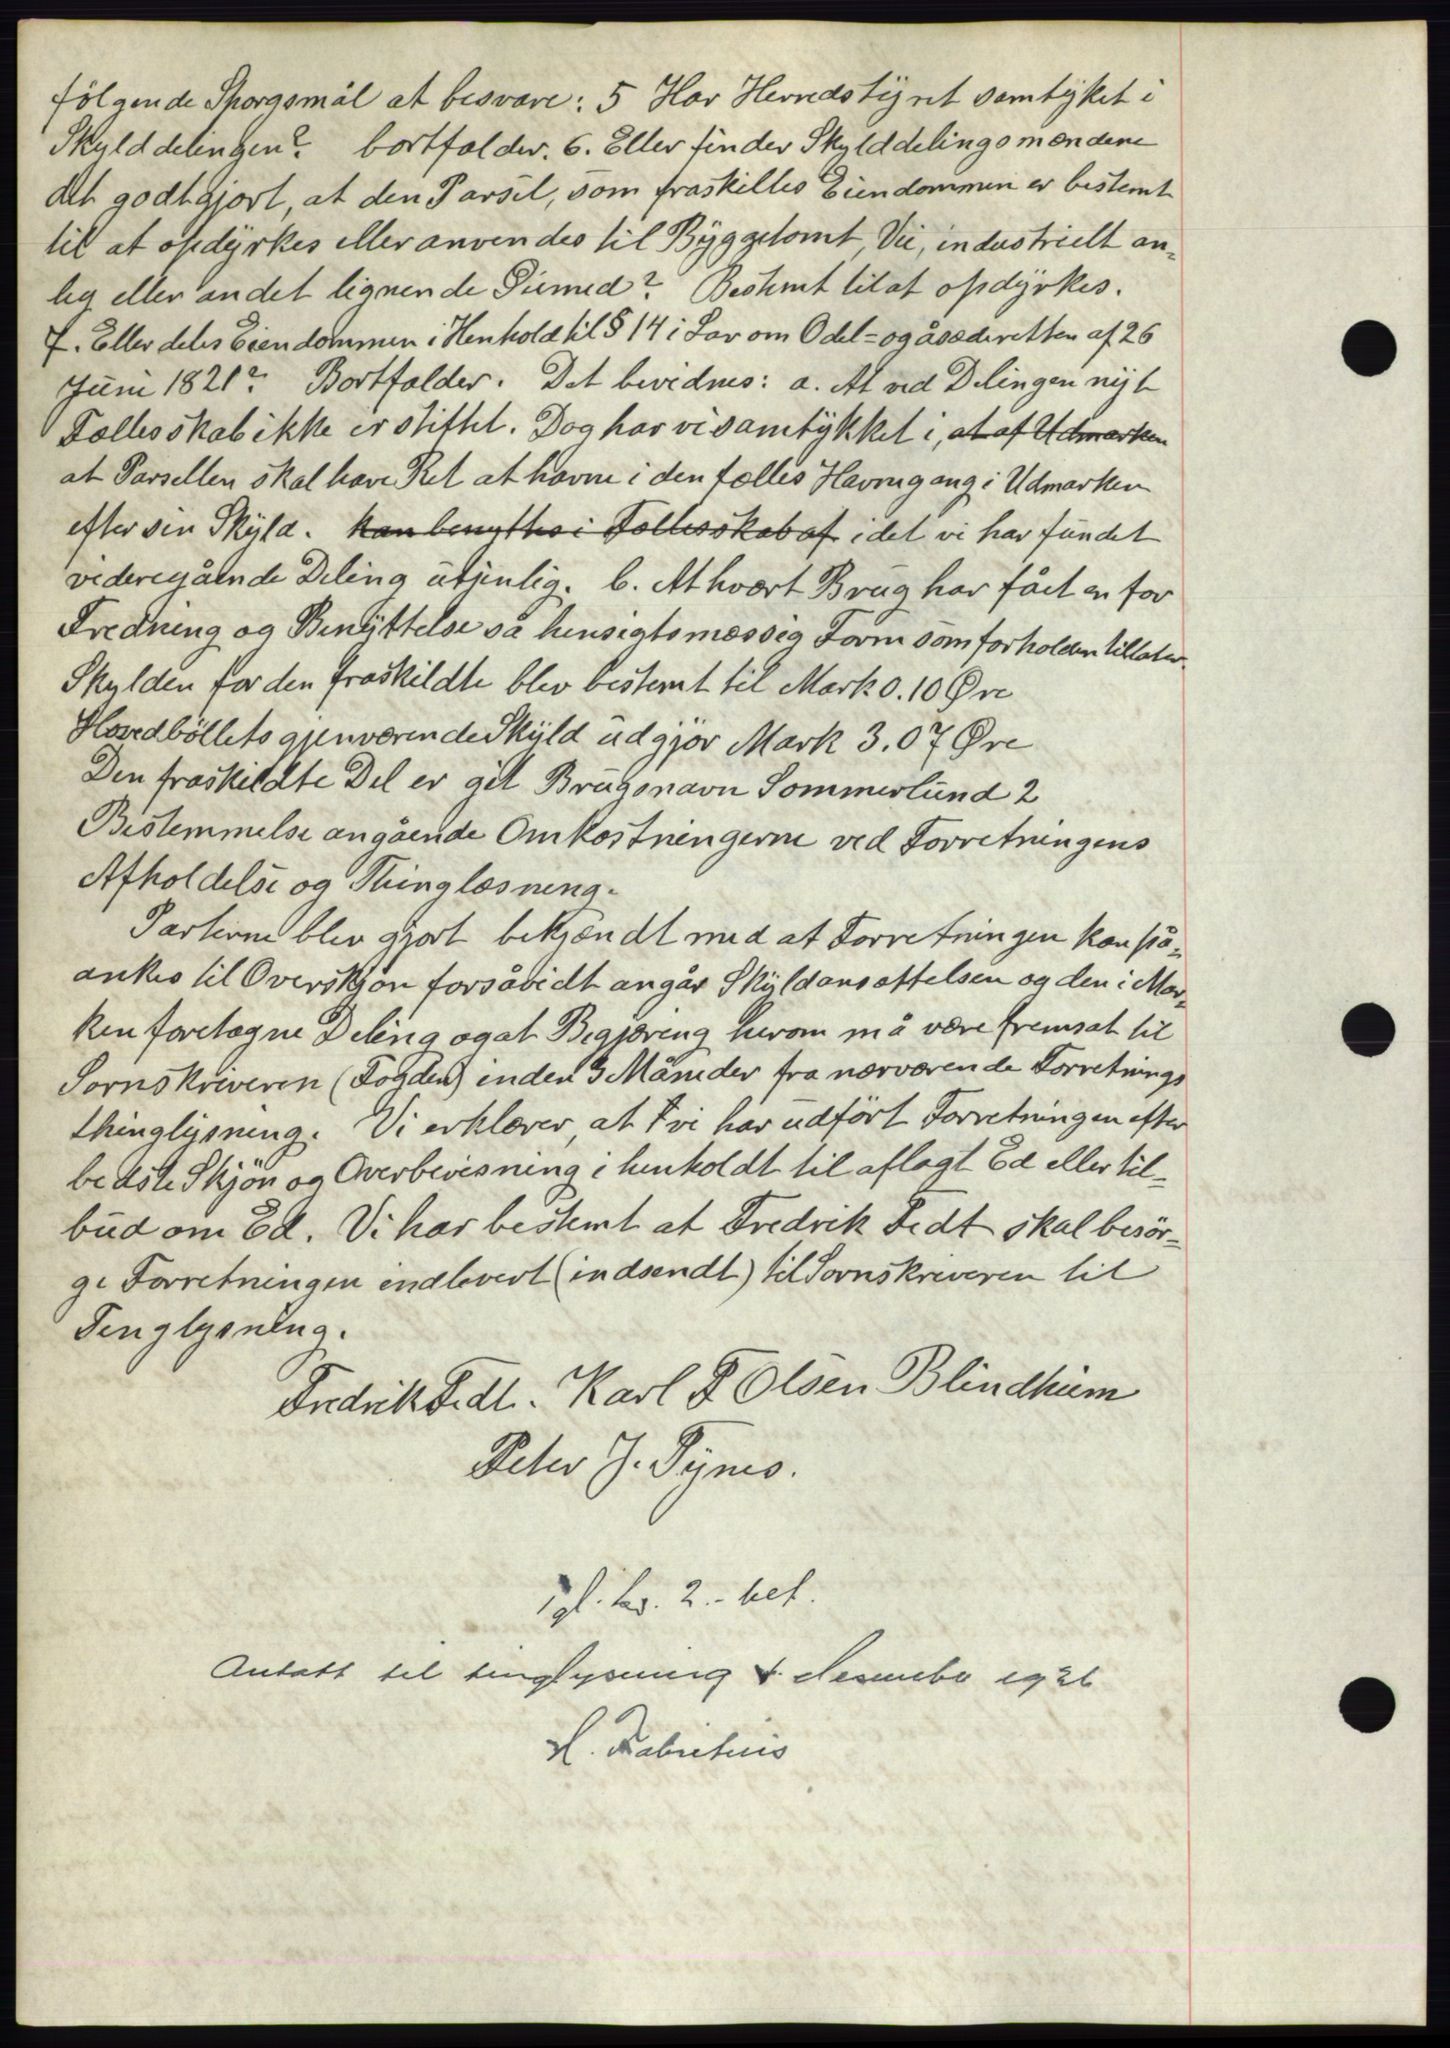 følgende Sporgsmål at besvare: 5 Har Herredstyret samtyket i
Skylddelingen? bortfalder. 6. Eller finder Skylddelingsmændene
det godtgjort, at den Parsel, som fraskilles Eiendommen er bestemt
til at opdyrkes eller anvendes til Byggetomt, Vei, industrielt an-
leg eller andet lignende Øiemed? Bestemt til at opdyrkes.
7. Eller deles Eiendommen i Henhold til § 14 i Lov om Odel- og åsæderetten af 26
Juni 1821? Bortfalder. Det bevidnes: a. At ved Delingen nyt
Fællesskab ikke er stiftet. Dog har vi samtykket i, at af Udmarken
at Parsellen skal have Ret at havne i den fælles Havnegang i Udmarken
efter sin Skyld. kan benyttes i Fællesskab af idet vi har fundet
videregående Deling utjenlig. b. At hvært Brug har fået en for
Fredning og Benyttelse så hensigtsmæssig Form som forholden tillater.
Skylden for den fraskildte blev bestemt til Mark 0.10 Øre
Hovedböllets gjenværende Skyld udgjör Mark 3.07 Øre
Den fraskildte Del er git Brugsnavn Sommerlund 2
Bestemmelse angående Omkostningerne ved Forretningens
Afholdelse og Thinglæsning.
Parterne blev gjort bekjændt med at Forretningen kan på-
ankes til Overskjøn forsåvidt angår Skyldansættelsen og den i Mar-
ken foretagne Deling og at Begjæring herom må være fremsat til
Sornskriveren (Fogden) inden 3 Måneder fra nærværende Forretnings
thinglysning. Vi erklærer, at vi har udfört Forretningen efter
bedste Skjön og Overbevisning i henholdt til aflagt Ed eller til-
bud om Ed. Vi har bestemt at Fredrik Fedt skal besör-
ge Forretningen indlevert (indsendt) til Sornskriveren til
Tinglysning.
Fredrik Fedt. Karl F Olsen Blindheim
Peter J. Synes.
Tgl. kr. 2.- bet.
Antatt til tinglysning desember 1926
H. Fabritius